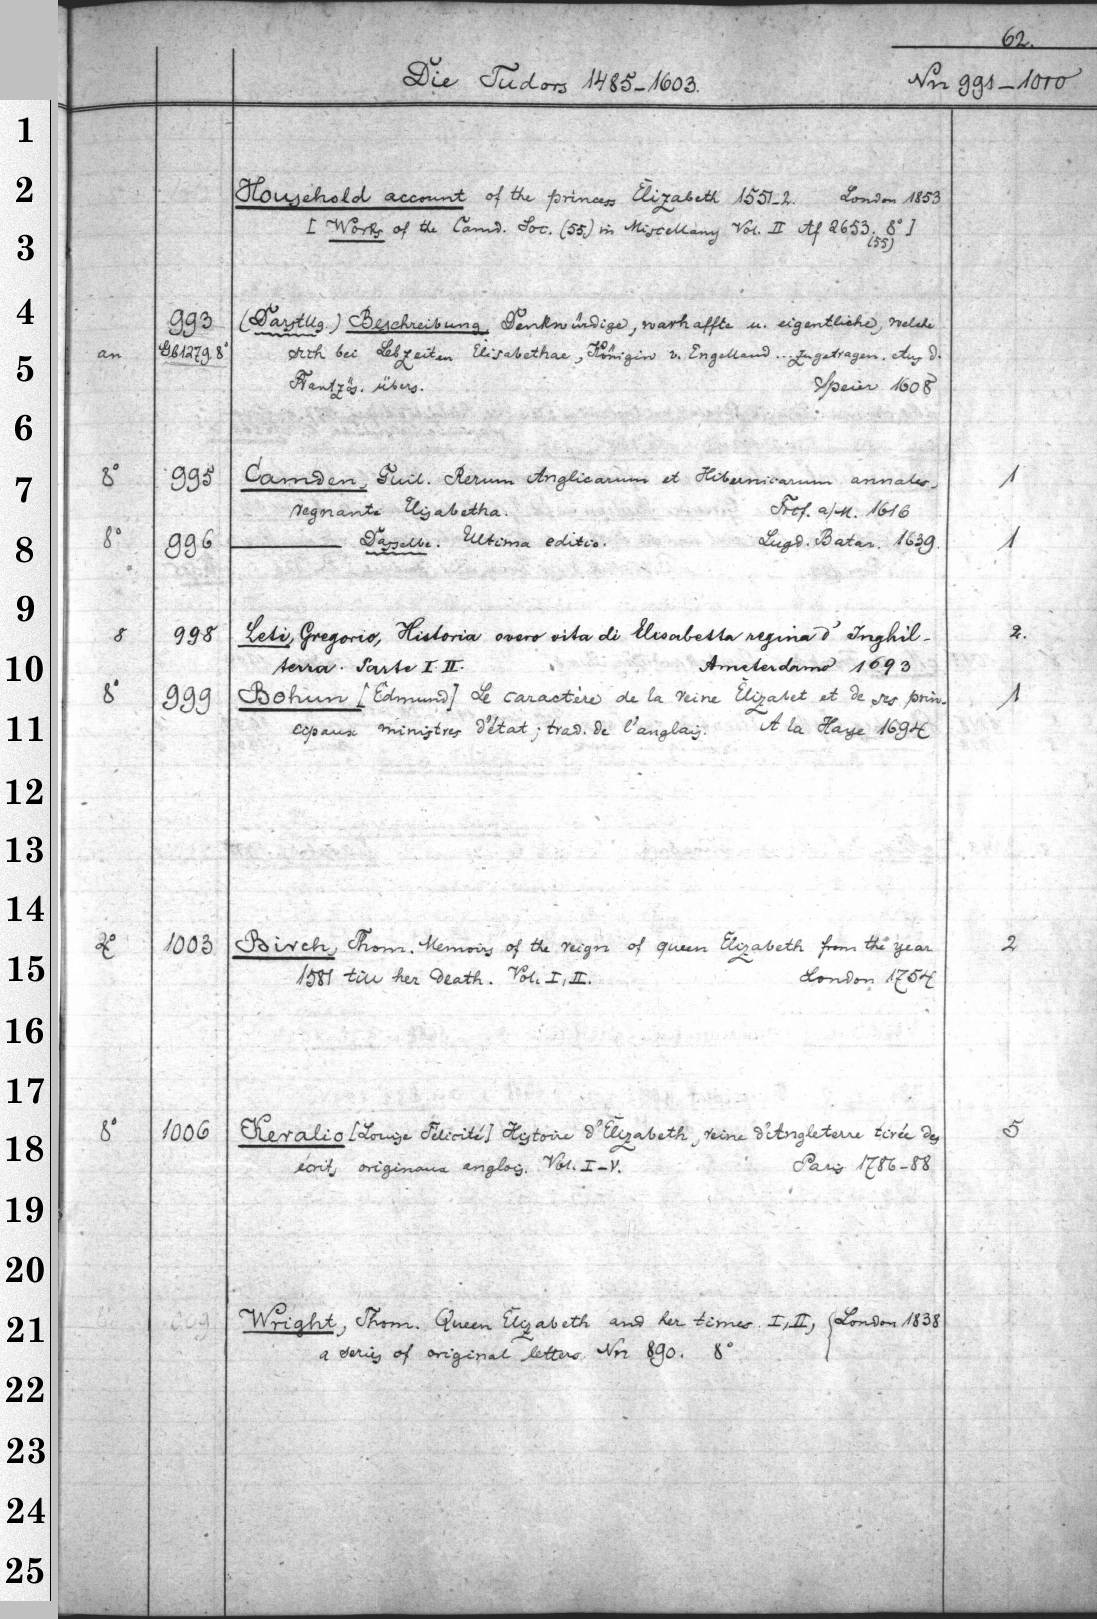 62.
Die Tudors 1485-1603. Nn 991-1000
1
2 Household account of the princess Elizabeth 1551-2. London 1853
3 [Works of the Camd. Soc. (55) in Miscellany Vol. II Af 2653. 8° ]
(55)
4 993 (Darstllg.) Beschreibung, Denkwürdige, warhaffte u. eigentliche, welche
5 an Gb1279.8° sich bei Lebzeiten Elisabethae, Königin v. Engelland ... zugetragen. Aus d.
Frantzös. übers. Speier 1608
6
7 8° 995 Camden, Guil. Rerum Anglicarum et Hibernicarum annales, 1
regnante Elisabetha. Frcf. a/M. 1616
8 8° 996 ——— Dasselbe. Ultima editio. Lugd. Batav. 1639. 1
9 8 998 Leti, Gregorio, Historia overo vita di Elisabetta regina d' Inghil- 2.
10 terra. Parte I. II. Amsterdamo 1693
8° 999 Bohun [Edmund] Le caractère de la reine Elizabet et de ses prin- 1
11 cipaux ministres d'état; trad. de l'anglais. A la Haye 1694
12
13
14
2° 1003 Birch, Thom. Memoirs of the reign of queen Elizabeth from the year 2
15 1581 till her death. Vol. I, II. London 1754
16
17
18 8° 1006 Keralio [Louise Félicité] Histoire d'Elizabeth, reine d'Angleterre tirée des 5
écrits originaux anglois. Vol. I-V. Paris 1786-88
19
20
21 009 Wright, Thom. Queen Elizabeth and her times. I, II, London 1838
a series of original letters. Nn 890. 8°
22
23
24
25